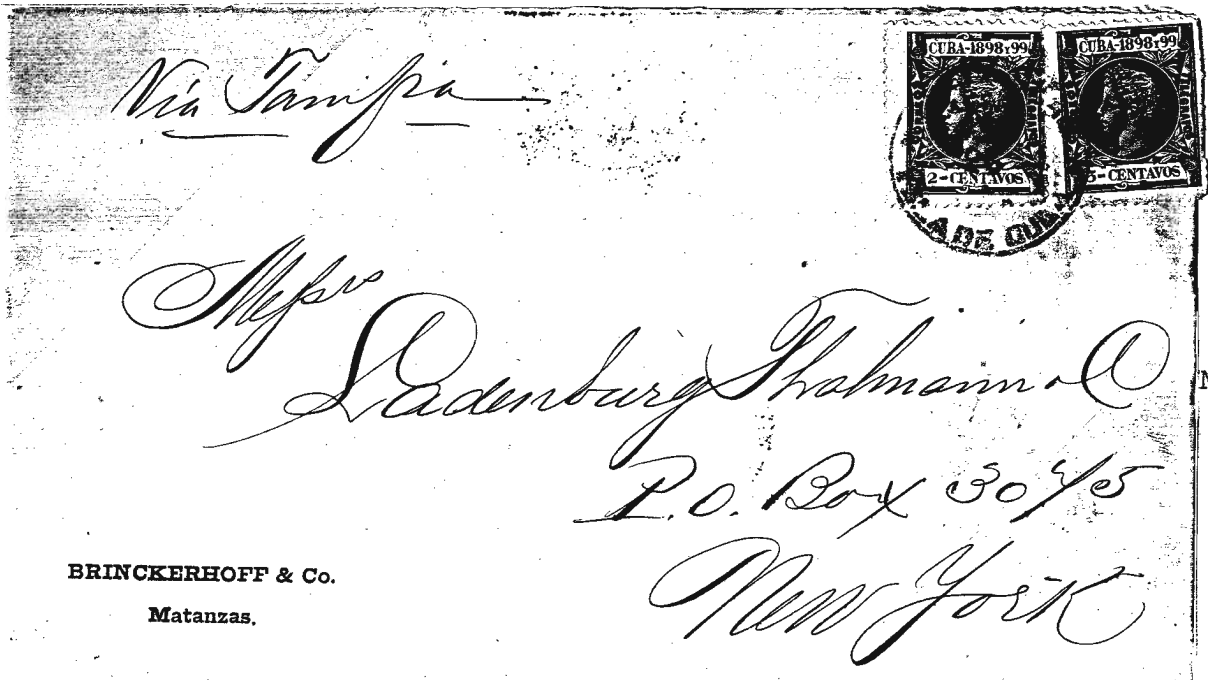 Via Tampa
CUBA-1898 Y 99
2-CENTAVOS
CUBA-1898 Y 99
5-CENTAVOS
A DE CUBA
Messrs
Ladenburg Thalmann & Co
P.O. Box 3045
New York
BRINCKERHOFF & Co.
Matanzas.